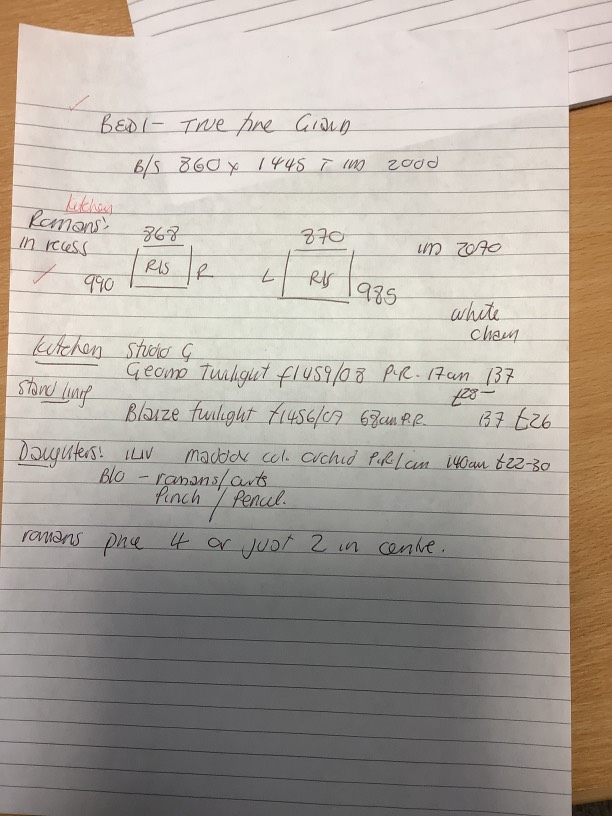 BED 1 - True fine Grain
B/S 860 x 1445 T 1in 2000
kitchen
Romans:
in recess
868
870
un 2070
990 R/S R
L R/S 985
white
chain
Kitchen Studio G
Geomo Twilight f1459/08 P.R. 17cm 137
£28-
Stand Ling
Blaize twilight f1456/07 68cm P.R. 137 £26
Daughters: ILIV maddox col. orchid P.R 1cm 140cm £22-30
B/O - romans/curts
Pinch / Pencil.
romans price 4 or just 2 in centre.